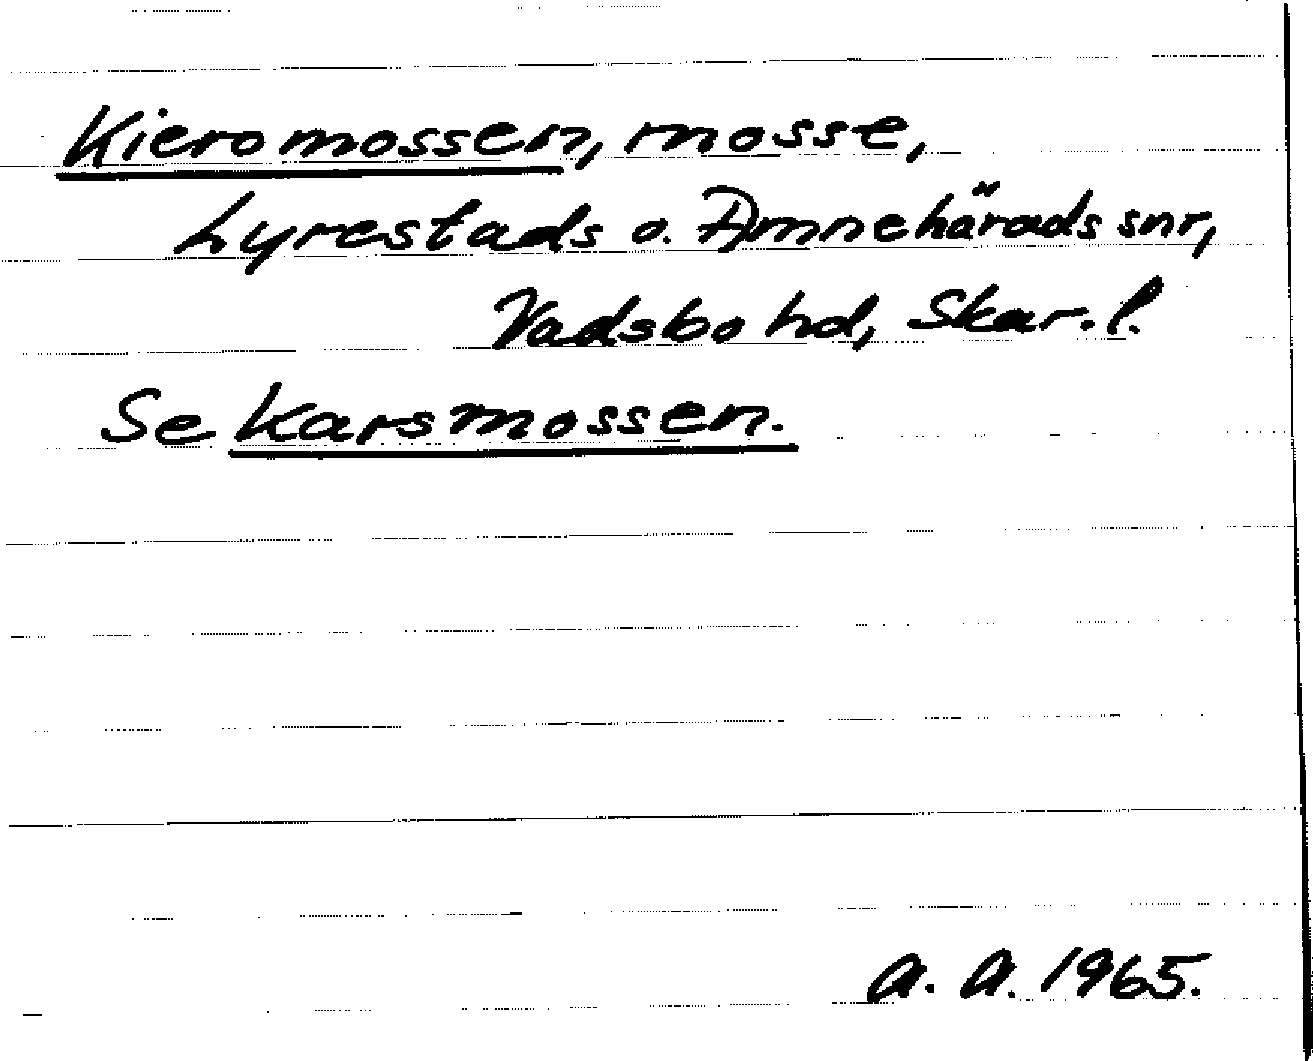 Kieromossen, mosse,
Lyrestads o. Amnehärads snr,
Vadsbo hd, Skar. l.
Se Karsmossen.
A. A. 1965.